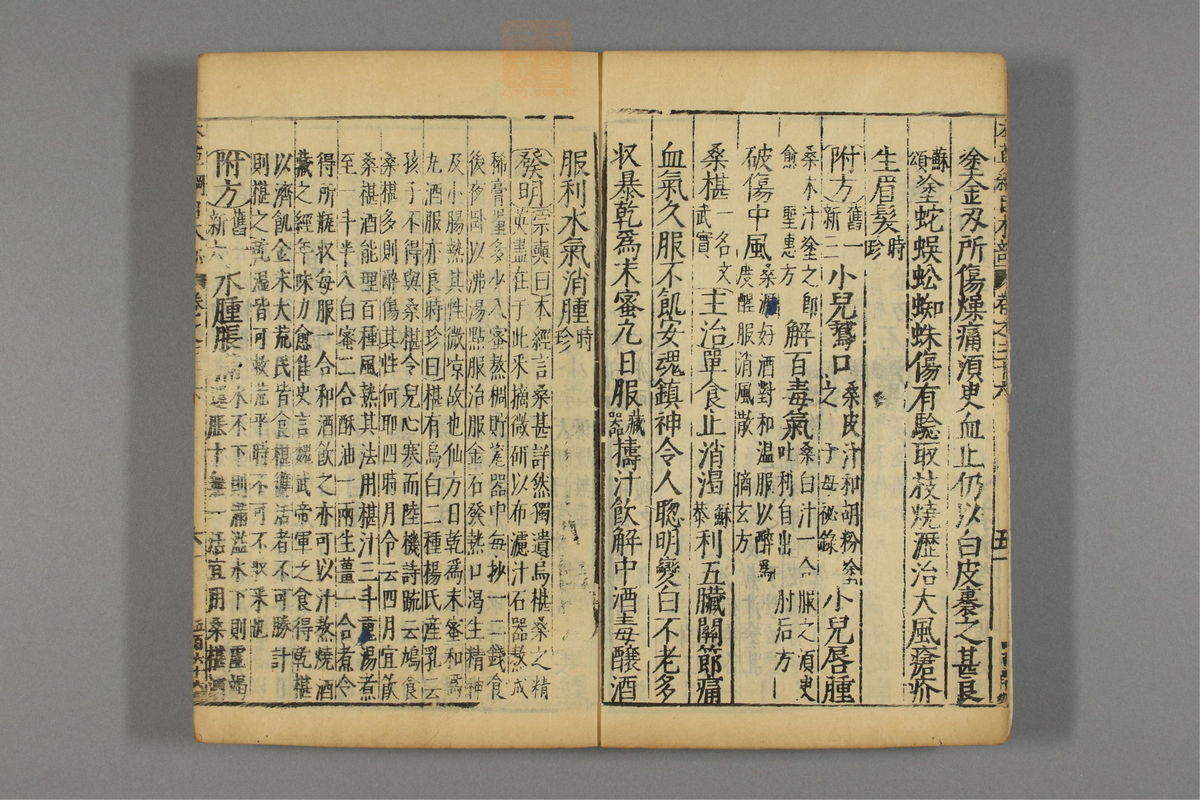 塗金刃所傷燥痛須臾血止仍以白皮裹之甚良
蘇頌塗蛇蜈蚣蜘蛛傷有驗取枝燒瀝治大風瘡疥
生眉髮時珍
附方舊一新三小兒鵞口桑皮汁和胡粉塗之子母祕錄小兒唇腫
桑木汁塗之即愈聖惠方解百毒氣桑白汁一合服之須臾吐利自出肘后方
破傷中風桑瀝好酒對和溫服以醉為度醒服消風散摘玄方
桑椹一名文武實主治單食止消渴蘇恭利五臟關節痛
血氣久服不飢安魂鎮神令人聦明變白不老多
収暴乾為末蜜丸日服藏器擣汁飲解中酒毒釀酒
服利水氣消腫時珍
發明宗奭曰本經言桑甚詳然獨遺烏椹桑之精
英盡在于此采摘微研以布濾汁石器熬成
稀膏量多少入蜜熬稠貯瓷器中每抄一二錢食
後夜卧以沸湯點服治服金石發熱口渴生精神
及小腸熱其性微凉故也仙方日乾為末蜜和為
丸酒服亦良時珍曰椹有烏白二種楊氏產乳云
孩子不得與桑椹令兒心寒而陸機詩疏云鳩食
桑椹多則醉傷其性何耶四時月令云四月宜飲
桑椹酒能理百種風熱其法用椹汁三斗重湯煮
至一斗半入白蜜二合酥油一兩生薑一合煮令
得所瓶収每服一合和酒飲之亦可以汁熬燒酒
藏之經年味力愈佳史言魏武帝軍乏食得乾椹
以濟飢金末大荒民皆食椹獲活者不可勝計
則椹之乾濕皆可救荒平時不可不収采也
附方舊一新六水腫脹滿水不下則滿溢水下則虛竭還脹十無一活宜用桑椹酒